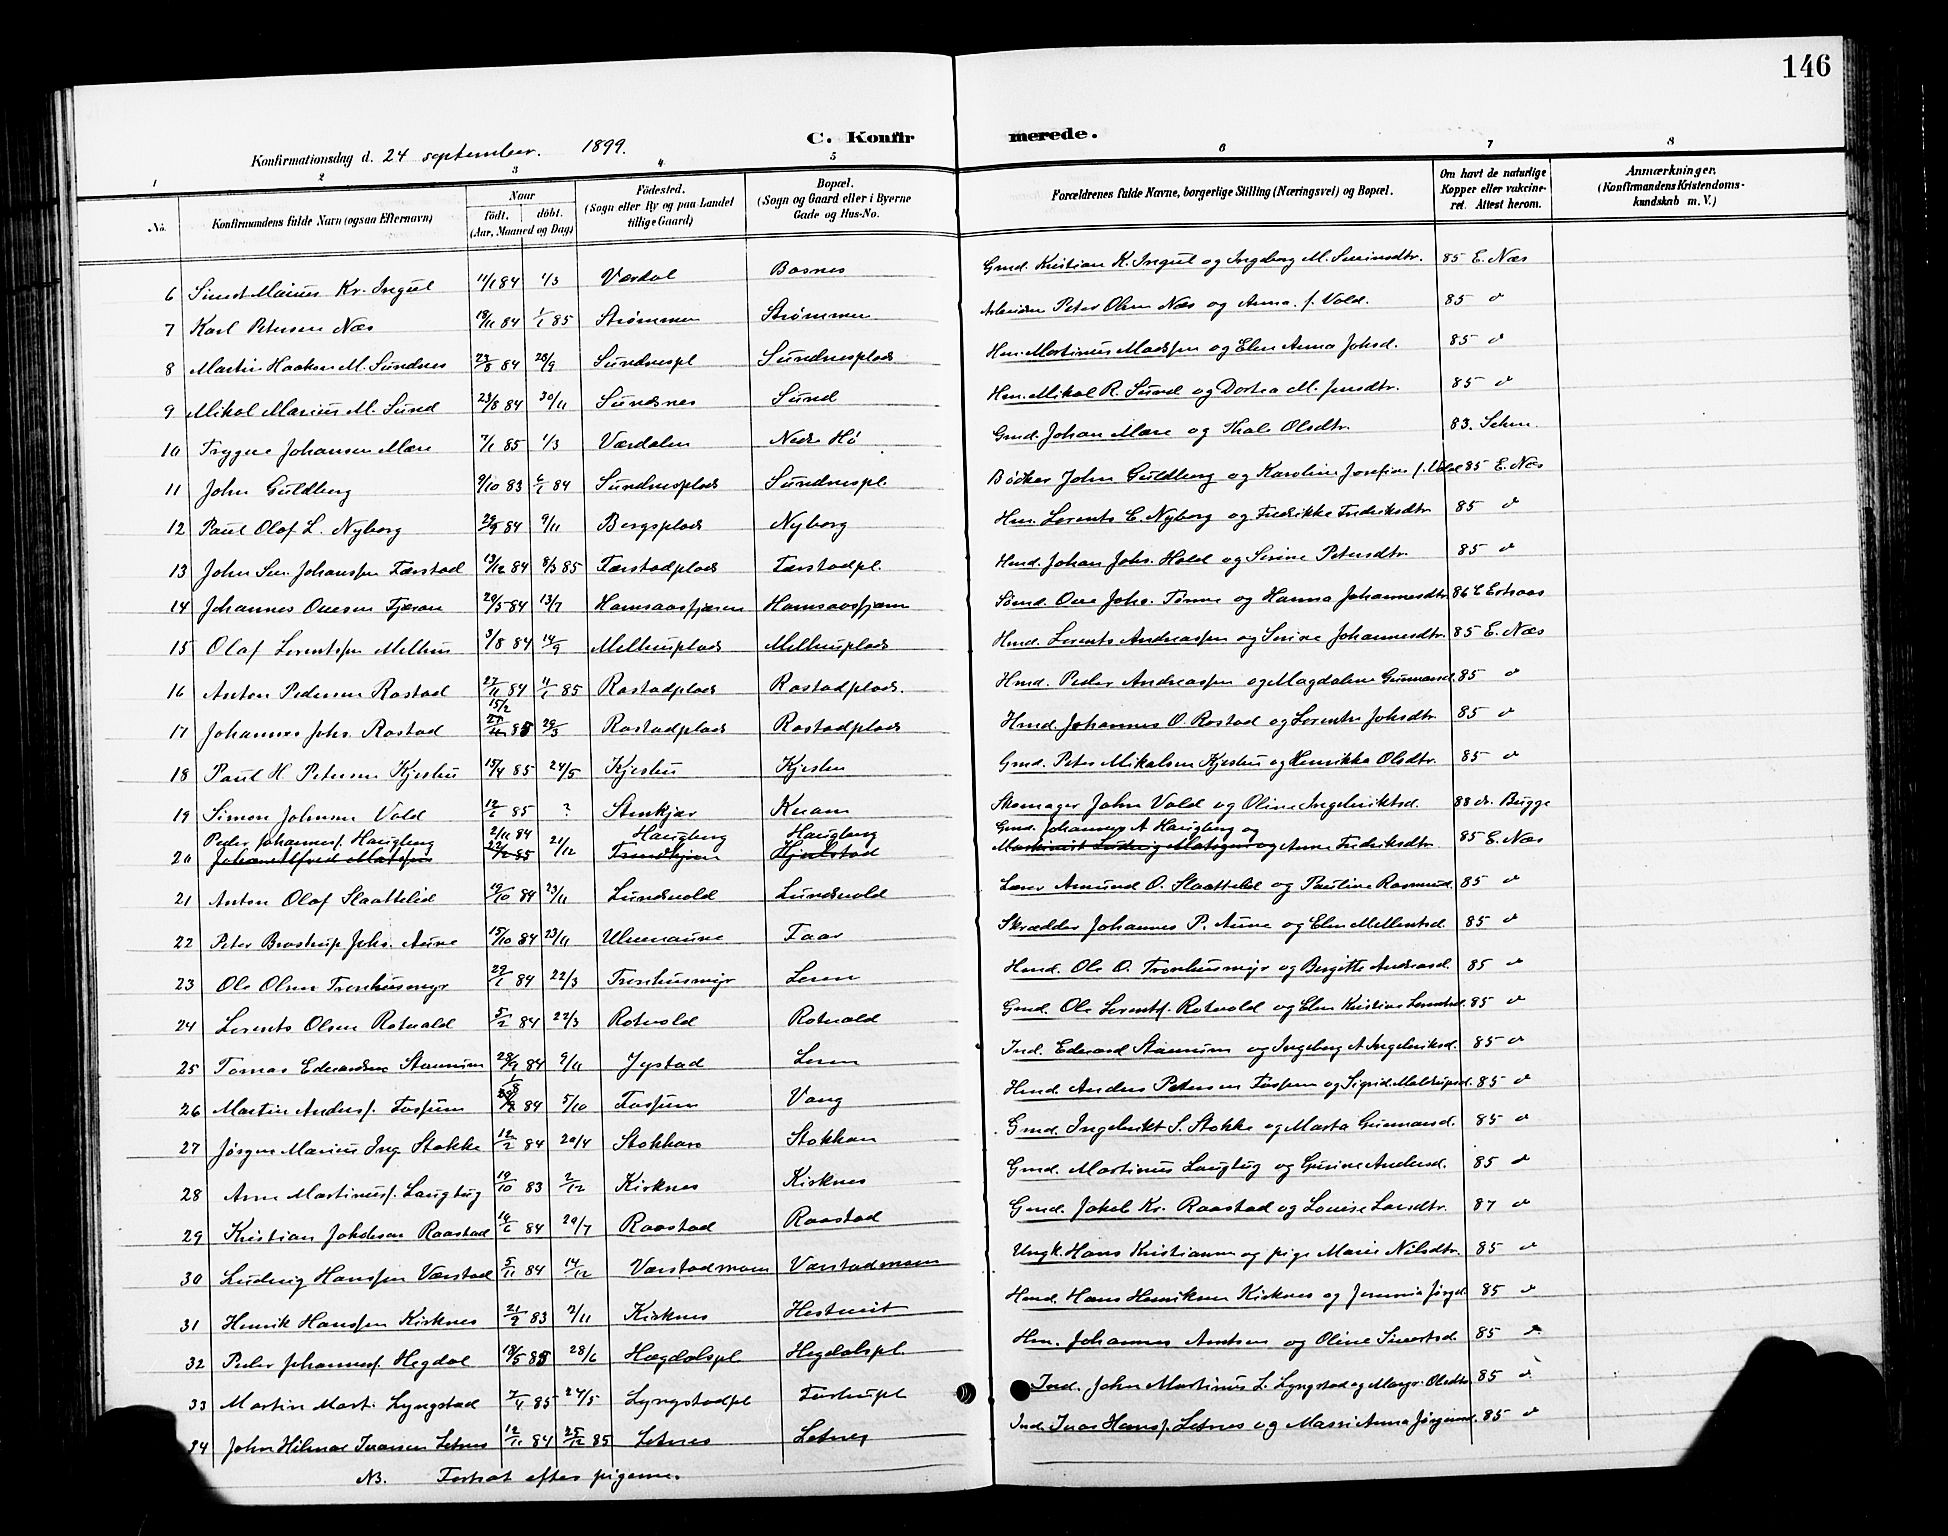 146
C. Konfirmerede.
Konfirmationsdag d. 24 september. 1899.
1 2 3 4 5 6 7 8
No. Konfirmandens fulde Navn (ogsaa Efternavn) Naar født. døbt. (Aar, Maaned og Dag) Fødested. (Sogn eller By og paa Landet tillige Gaard) Bopæl. (Sogn og Gaard eller i Byerne Gade og Hus-No. Forældrenes fulde Navne, borgerlige Stilling (Næringsvei) og Bopæl. Om havt de naturlige Kopper eller vakcineret. Attest herom. Anmærkninger. (Konfirmandens Kristendomskundskab m. V.)
6 Marius Kr. Ingul 11/1 84 1/3 Værdal Gmd. Kristian K. Ingul og Ingeborg M. 85 E. Næs
7 Karl Petersen Næs 18/11 84 1/1 85 Strømmen Strømmen Arbeider Peter Olsen Næs og Anna f. Vold. 85 "
8 Martin Haakon M. Sundnes 23/8 84 28/9 Sundnespl Sundnesplads Hm. Martinus Madssen og Elen Anna Johsd. 85 "
9 Mikal Marius M. Sund 23/8 84 30/11 Sundsnes Sund Hm. Mikal R. Sund og Dortea M. Jensdtr. 85 "
10 Trygve Johansen Mære 7/1 85 1/3 Værdalen Nedre Hø Gmd. Johan Mære og Thale Olsdtr. 83.
11 John Guldberg 9/10 83 6/1 84 Sundnesplads Sundnespl. Bødker John Guldberg og Karoline Josefine f. Vold 85 E. Næs
12 Paul Olaf L. Nyborg 84 9/11 Bergsplads Nyborg Hm. Lorents E. Nyborg og Fredrikke Fredriksdtr 85 "
13 John Sev. Johanssen Færstad 13/12 84 8/3 85 Færstadplads Færstadpl. Hmd. Johan Johs. Hold og Serine Petersdtr. 85 "
14 Johannes Ovesen Fjæran 29/5 84 13/7 Hamsaasfjæren Hamsaasfjæren Ove Johs. og Hanna Johannesdtr 86
15 Olaf Lorentssen Melhus 3/8 84 14/9 Melhusplads Melhusplads Hmd. Lorents Andreassen og Serine Johannesdtr. 85 E. Næs
16 Anton Pedersen Rostad 27/11 84 11/1 85 Rostadplads Rostadplads. Hmd. Peder Andreassen og Magdalene Gunnarsd. 85 "
17 Johannes Johs. Rostad 15/2 85 29/3 Rostadplads Rostadplads Hmd. Johannes O. Rostad og Lorentse Johsdtr. 85 "
18 Paul H. Petersen Kjeshu 15/4 85 24/5 Kjeshu Kjeshu Gmd. Peter Mikalsen Kjeshu og Henrikka Olsdtr. 85 "
19 Simon Johnsen Vold 85 ? Stenkjær Kvam Skomager John Vold og Oline Ingebriktsd. 88 dr. Bugge
20 Peder Johanness. Haugberg 2/11 84 21/12 Haugberg Haugberg Gmd. Johannes A Haugberg og Anne Fredriksdtr 85 E. Næs
21 Anton Olaf Slaattelid 19/10 84 23/11 Lundsvold Lundsvold Lærer Amund O. Slaattelid og Pauline Rasmusd. 85 "
22 Peter Brostrup Johs. Aune 15/10 84 23/11 Ulvenaune Faar Skrædder Johannes P. Aune og Elen Mellentsd. 85 "
23 Ole Olsen Tronhusmyr 84 22/3 Tronhusmyr Leren Hmd. Ole O. Tronhusmyr og Bergitte Andreasd. 85 "
24 Lorents Olsen Rotvold 5/2 84 22/3 Rotvold Rotvold Gmd. Ole Lorents. Rotvold og Elen Kristine Lorentsd. 85 "
25 Tomas Edvardsen Stamnum 28/9 84 9/11 Jystad Leren Ind. Edvard Stamnum og Ingeborg A Ingebriktsd. 85 "
26 Martin Anders. Fossum 1/8 84 5/10 Fossum Vang Hmd. Anders Petersen Fossum og Sigrid 85 "
27 Jørgen Marius Ing. Stokke 12/2 84 20/4 Stokkan Stokkan Gmd. Ingebrikt S. Stokke og Marta Gunnarsd. 85 "
28 Arne Martinuss. Laugtug 19/10 83 2/12 Kirknes Kirknes Gmd. Martinus Laugtug og Gurine Andersd. 85 "
29 Kristian Jakobsen Raastad 84 20/7 Raastad Raastad Gmd. Jakob Kr. Raastad og Lovise Larsdtr. 87 "
30 Ludvig Hanssen Værstad 5/11 84 14/12 Værstadmoen Værstadmoen Ungk. Hans Kristiansen og pige Marie Nilsdtr. 85 "
31 Henrik Hanssen Kirknes 21/9 83 2/11 Kirknes Hestveit Hmd. Hans Henriksen Kirknes og Jørgd. 85 "
32 Peder Johanness. Hegdal 18/5 85 28/6 Hægdalspl. Hegdalspl. Hm. Johannes Arntsen og Oline Sivertsd. 85 "
33 Martin Mart. Lyngstad 7/4 85 24/5 Lyngstadpl Ind. John Martinus L. Lyngstad og Marg. Olsdtr. 85 "
34 John Hilmar Ivarsen Letnes 12/11 84 25/12 85 Letnes Letnes Ind. Ivar Hanss. Letnes og Massi Anna Jørgensd. 85 "
NB. Fortsat efter pigerne.